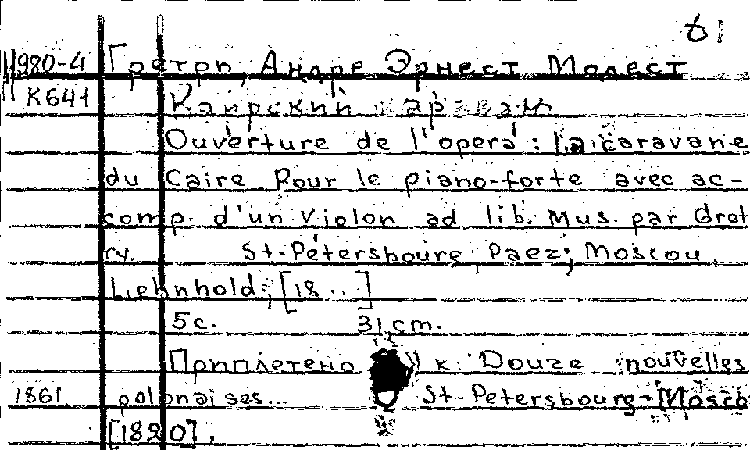 б1
1980-4 Гретри, Андре Эрнест Модест
К641 Каирский караван
Ouverture de l'opéra: La caravane
du Caire pour le piano-forte avec ac-
comp. d'un violon ad lib. Mus. par Gret-
ry. St-Pétersbourg, Paez; Moscou,
Lehnhold, [18...]
5c. 31 cm.
Приплетено к: Douze nouvelles
1861 polonaises... St-Petersbourg-Mosco
[1820].